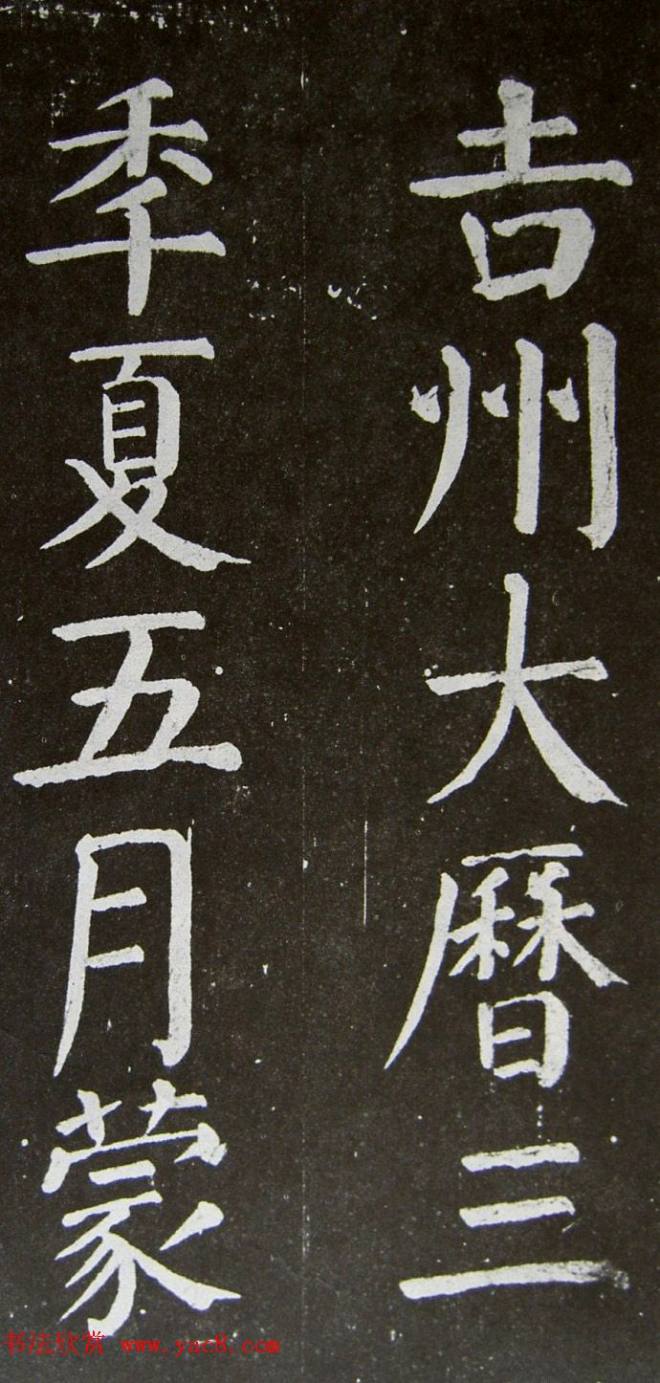 吉州大曆三
秊夏五月蒙
书法欣赏 www.yac8.com